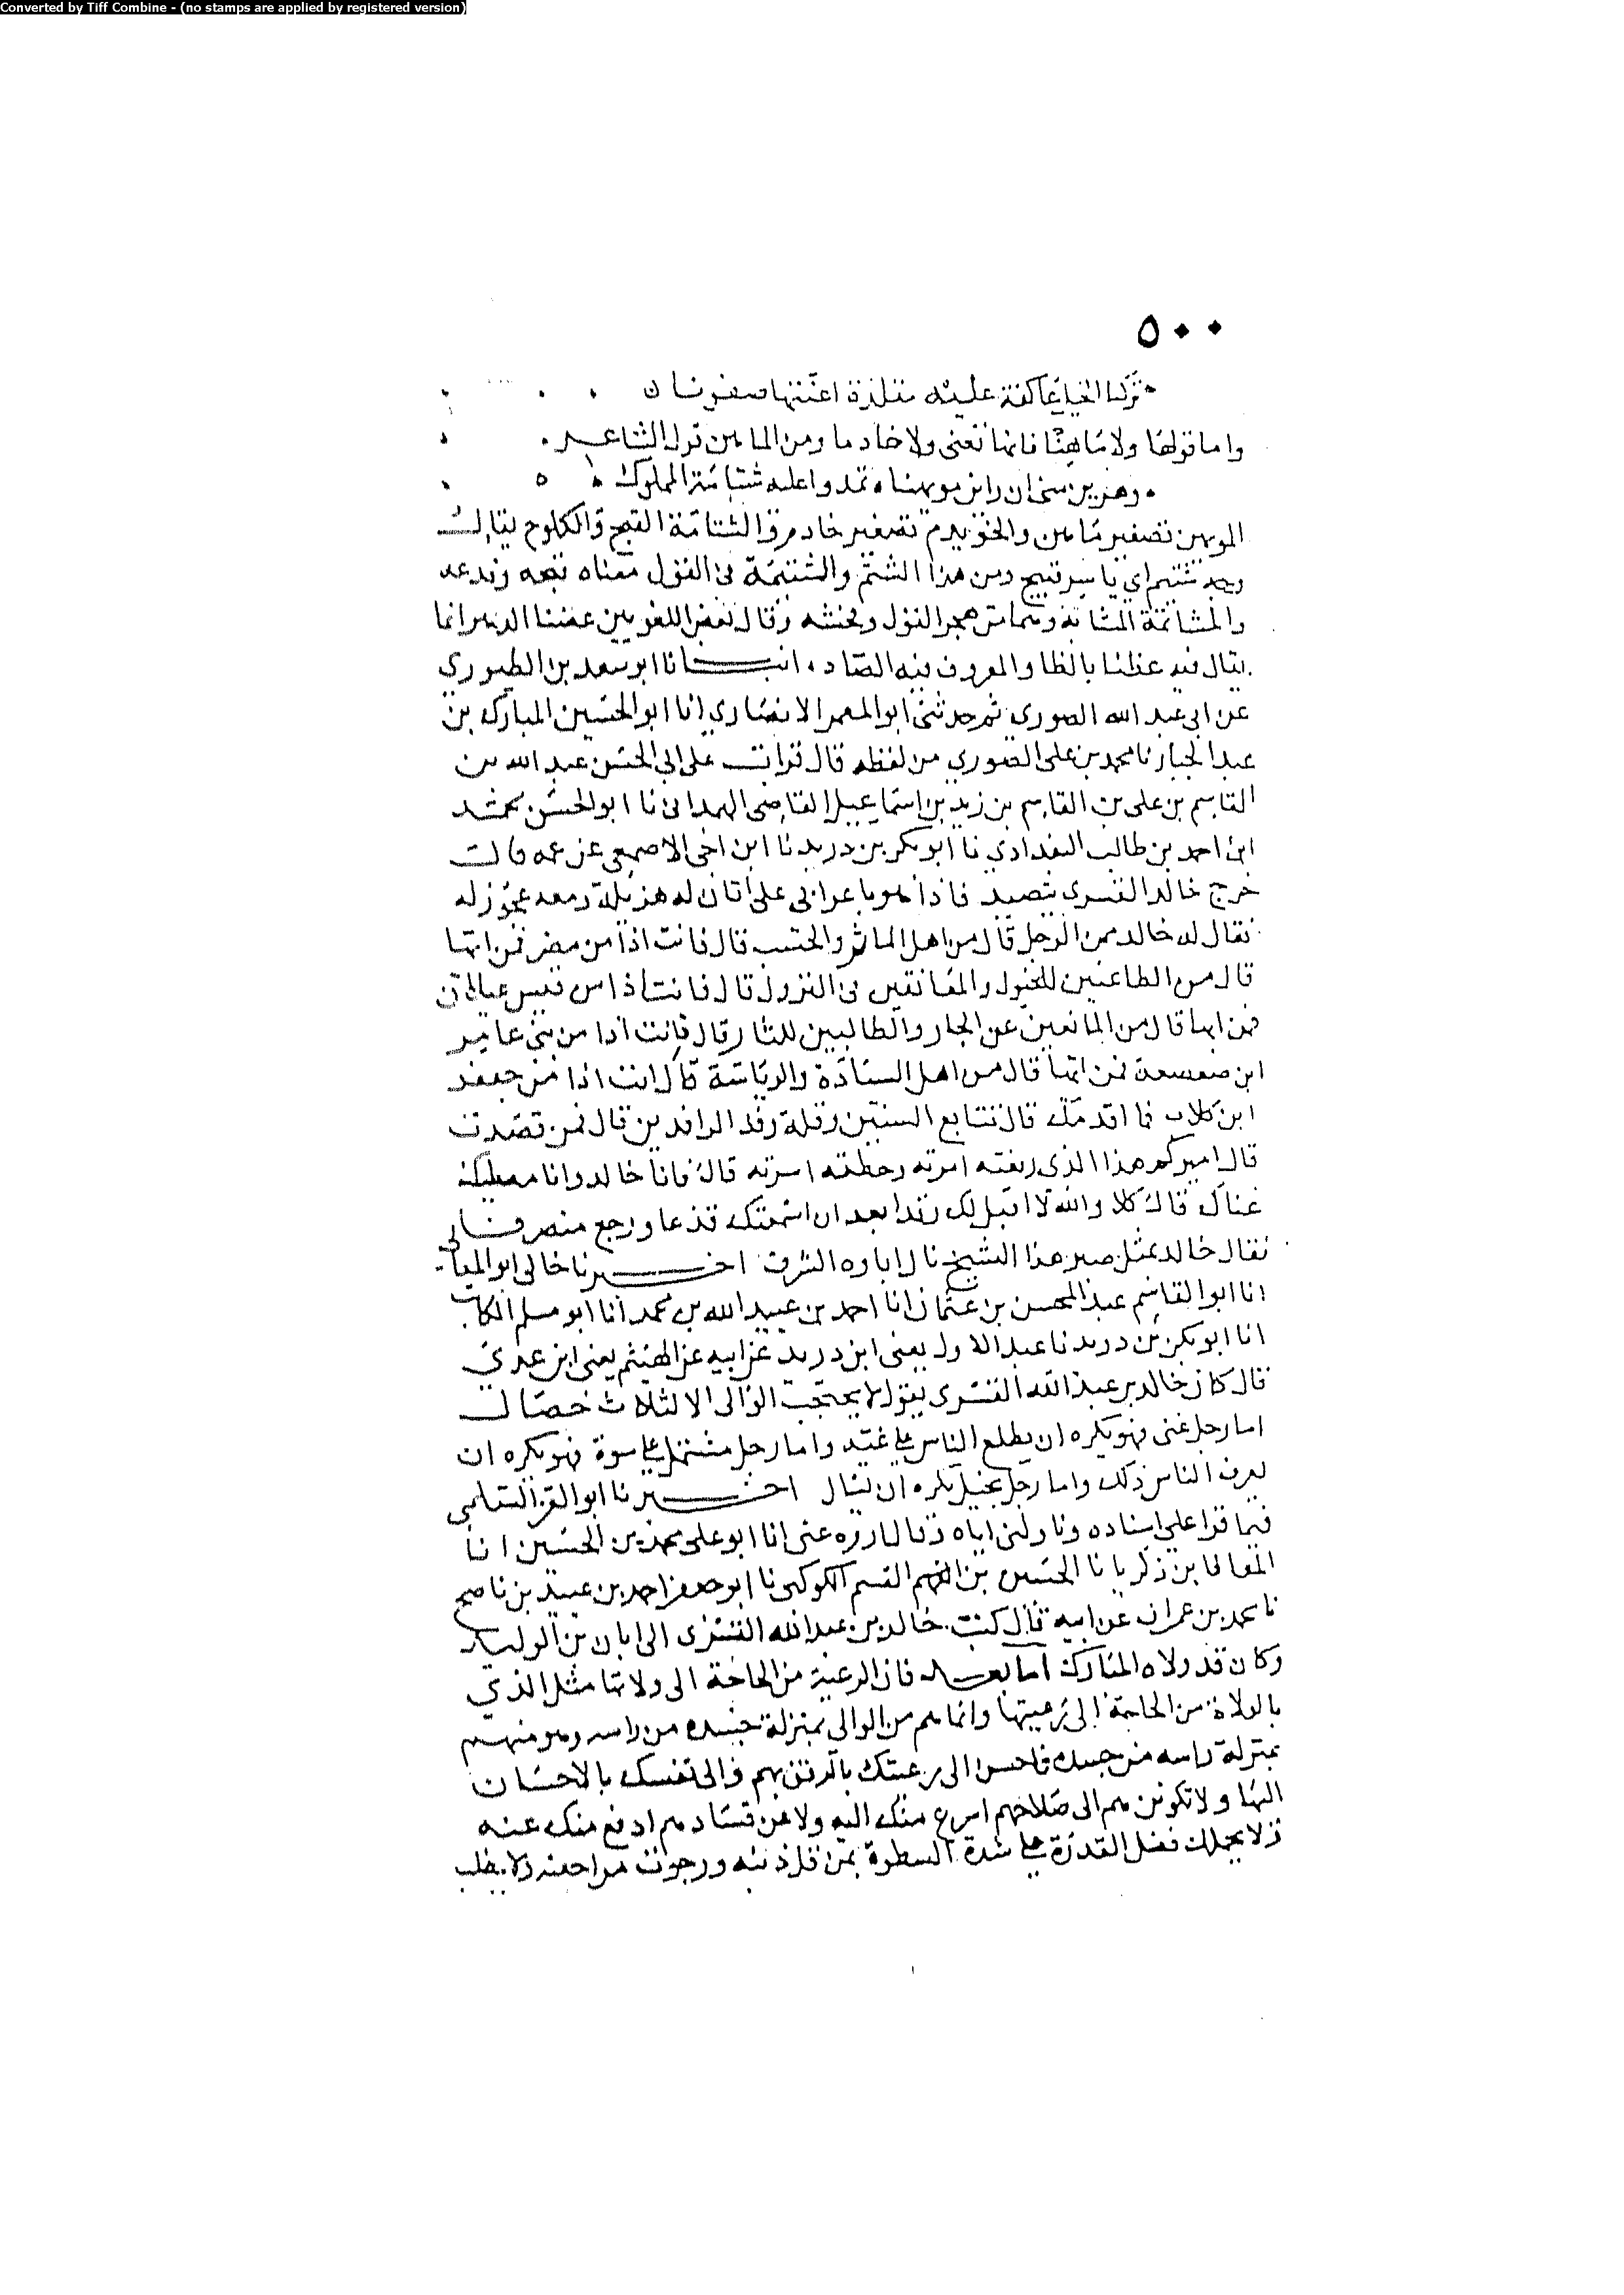 Converted by Tiff Combine - (no stamps are applied by registered version)
٥٠٠
تركنا الخيل عاكفة عليه مقلدة اعنتها صفونا
واما قولها ولا ماهنا فانها تعني ولا خادما ومن الماهن قول الشاعر
وهزين من ان راين مويهنا تبدوا عليه شتامة المملوك
المويهن تصغير ماهن والخويدم تصغير خادم والشتامة القبح والكلوح يقال
وجه شتيم اي ياسر قبيح ومن هذا الشتم والشتيمة في القول معناه قبحه وقدعه
والمشاتمة المشاتمه وهما من هجر القول وفحشه وقال بعض اللغويين عضنا الدهر انما
يقال فيه عظنا بالظا والمعروف فيه الضاد انبانا ابو سعد بن الطيوري
عن ابي عبد الله الصوري ثم حدثني ابو المعمر الانصاري انا ابو الحسين المبارك بن
عبد الجبار نا محمد بن علي الصوري من لفظه قال قرات على ابي الحسن عبد الله بن
القاسم بن علي بن القاسم بن زيد بن اسماعيل القاضي الهمداني نا ابو الحسن محمد
ابن احمد بن طالب البغدادي نا ابو بكر بن دريد نا ابن اخي الاصمعي عن عمه قال
خرج خالد القسري يتصيد فاذا هو باعرابي على اتان له هزيلة ومعه عجوز له
فقال له خالد ممن الرجل قال من اهل الماثر والحسب قال فانت اذا من مضر فمن ايها
قال من الطاعنين للخيول والمعانقين في النزول قال فانت اذا من قيس عيلان
فمن ايها قال من المانعين عن الجار والطالبين للثار قال فانت اذا من بني عامر
ابن صعصعة فمن ايها قال من اهل السيادة والرياسة قال انت اذا من جعفر
ابن كلاب فما اقدمك قال تتابع السنين وقلة رفد الرافدين قال فمن قصدت
قال اميركم هذا الذي رفعته امرته وحطته اسرته قال فانا خالد وانا معطيك
غناك قال كلا والله لا اقبل لك رفدا بعد ان اسمعتك قذعا ورجع منصرفا
فقال خالد بمثل صبر هذا الشيخ نال اباوه الشرف اخبرنا خالي ابو المعالي
انا ابو القاسم عبد المحسن بن عثمان انا احمد بن عبيد الله بن محمد انا ابو مسلم الكاتب
انا ابو بكر بن دريد نا عبد الاول يعني ابن دريد عن ابيه عن الهيثم يعني ابن عدي
قال كان خالد بن عبد الله القسري يقول لا يحتجب الوالي الا لثلاث خصال
اما رجل عني فهو يكره ان يطلع الناس على عيه واما رجل مشتمل على سوة فهو يكره ان
يعرف الناس ذلك واما رجل بخيل يكره ان يسال اخبرنا ابو العز السلمي
فيما قرا علي اسناده وناولني اياه وقال اروه عني انا ابو علي محمد بن الحسين انا
المعافا بن زكريا نا الحسين بن القسم الكوكبي نا ابو جعفر احمد بن عبيد بن ناصح
نا محمد بن عمران عن ابيه قال كتب خالد بن عبد الله القسري الى ابان بن الوليد
وكان قد ولاه المبارك اما بعد فان الرعية من الحاجة الى ولاتها مثل الذي
بالولاة من الحاجة الى رعيتها وانما هم من الوالي بمنزلة جسده من راسه وهو منهم
بمنزلة راسه من جسده فاحسن الى رعيتك بالرفق بهم والى نفسك بالاحسان
اليها ولا تكونن هم الى صلاحهم اسرع منك اليه ولا عن فسادهم ادفع منك عنه
ولا يحملك فضل القدرة على شدة السطوة بمن قل ذنبه ورجوت مراجعته ولا يطلب